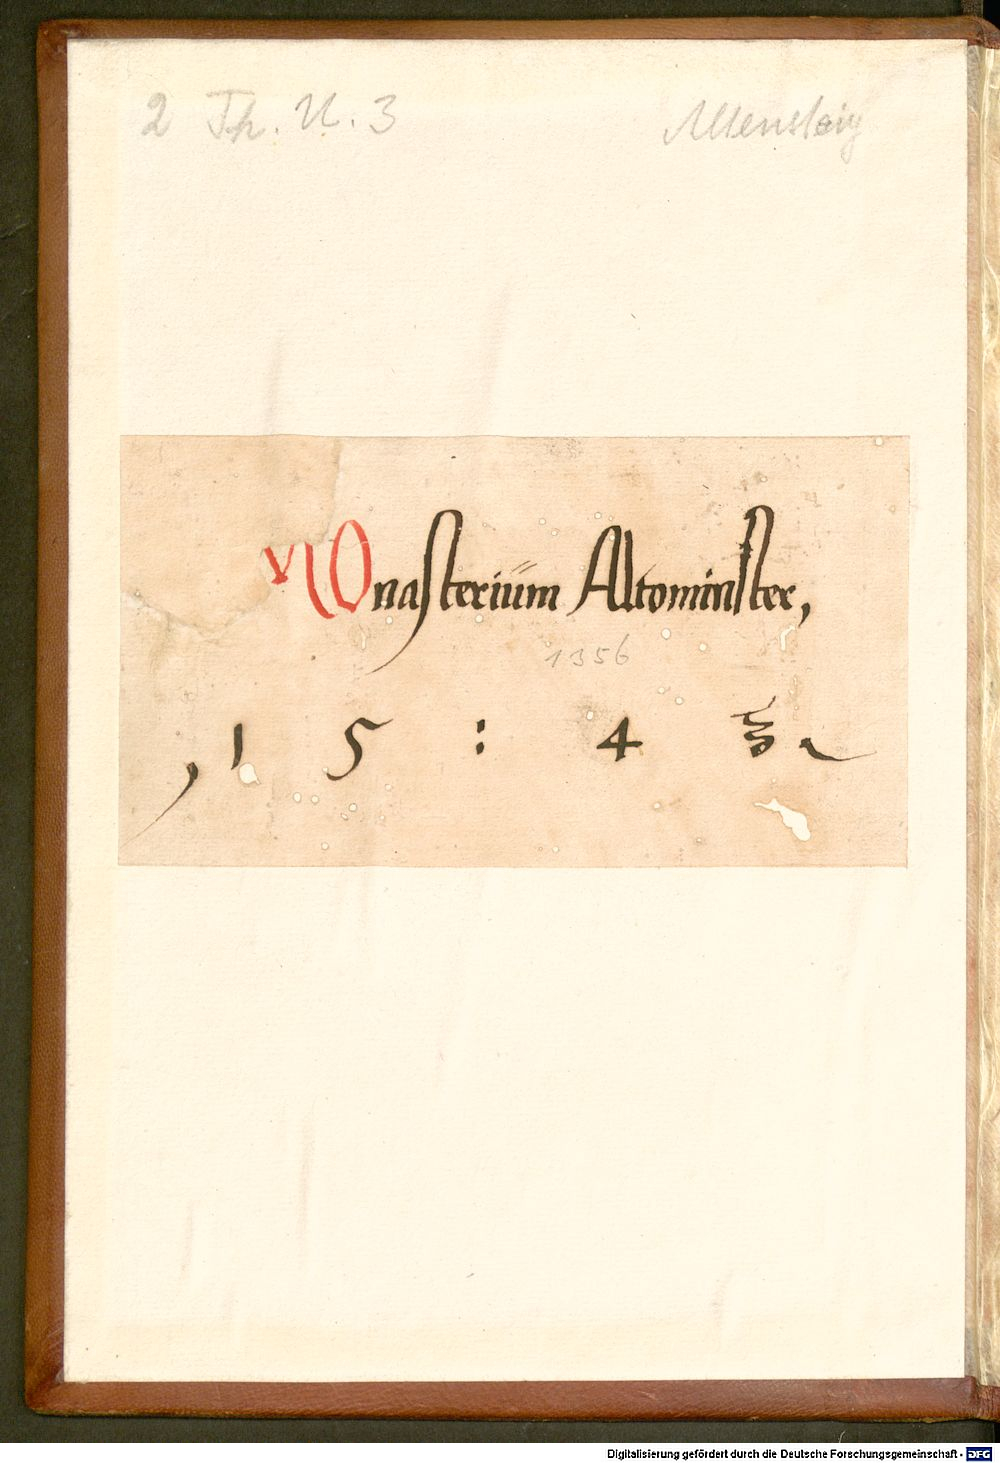 2 Th. U. 3 Altensteig
Monasterium Altominster,
1356
, 1 5 : 4
Digitalisierung gefördert durch die Deutsche Forschungsgemeinschaft - DFG